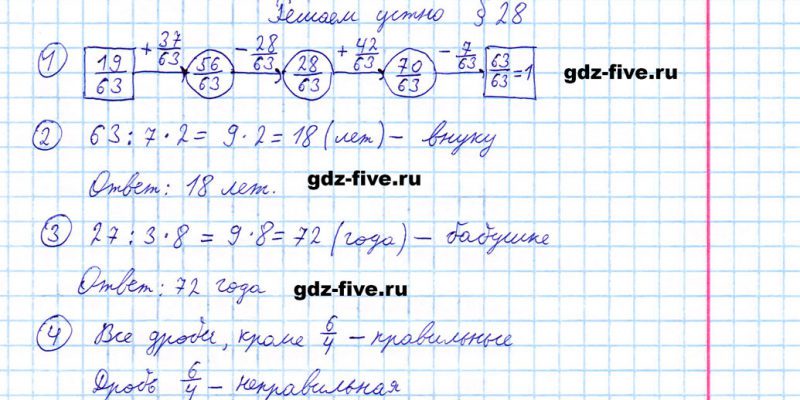 Решаем устно § 28
① 19/63 + 37/63 → 56/63 − 28/63 → 28/63 + 42/63 → 70/63 − 7/63 → 63/63 = 1 gdz-five.ru
② 63 : 7 · 2 = 9 · 2 = 18 (лет) – внуку
Ответ: 18 лет. gdz-five.ru
③ 27 : 3 · 8 = 9 · 8 = 72 (года) – бабушке
Ответ: 72 года gdz-five.ru
④ Все дроби, кроме 6/4 – правильные
Дробь 6/4 – неправильная